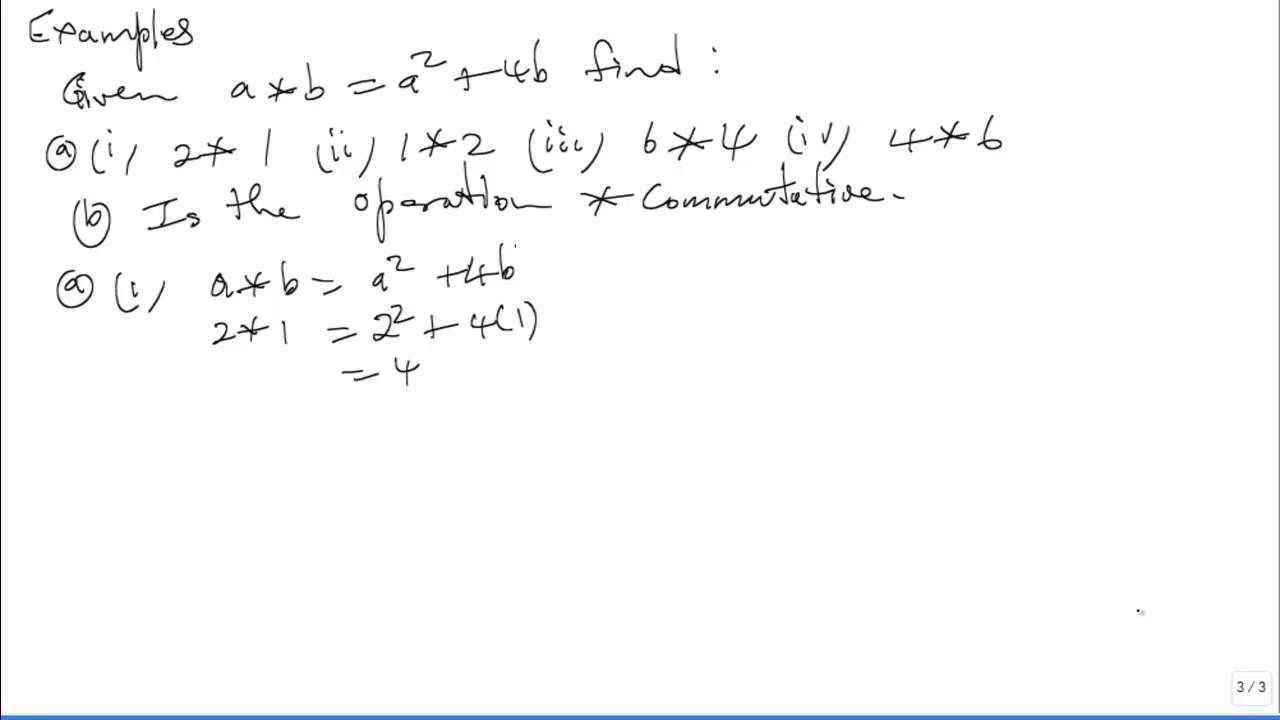 Examples
Given a * b = a² + 4b find :
ⓐ (i) 2 * 1 (ii) 1 * 2 (iii) 6 * 4 (iv) 4 * 6
ⓑ Is the operation * Commutative.
ⓐ (i) a * b = a² + 4b
2 * 1 = 2² + 4(1)
= 4
3 / 3